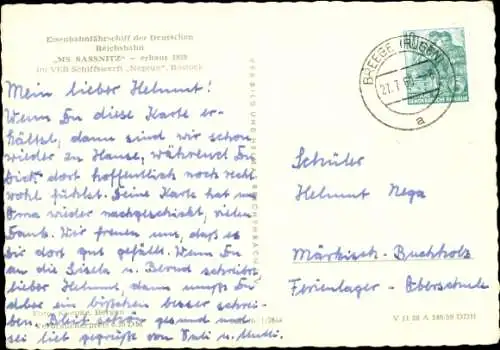 Eisenbahnfährschiff der Deutschen
Reichsbahn
„MS SASSNITZ" – erbaut 1959
im VEB Schiffswerft „Neptun", Rostock
BREEGE (RÜGEN)
a
Mein lieber Helmut!
Wenn Du diese Karte er-
hältst, dann sind wir schon
wieder zu Hause, während Du
Dich dort hoffentlich noch recht
wohl fühlst. Deine Karte hat uns
Oma wieder nachgeschickt, vielen
Dank. Wir freuen uns, daß es
Dir dort gut gefällt. Wenn Du
an die Gisela u. Bernd schreibst,
lieber Helmut, dann mußt Du
aber ein bißchen besser schrei-
ben. Bleib schön gesund und
sei lieb gegrüßt von Vati u. Mutti.
Schüler
Helmut Nega
Märkisch-Buchholz
Ferienlager-Oberschule